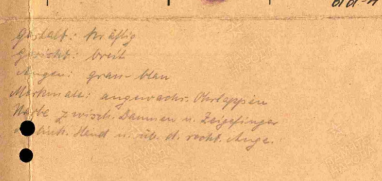 Gestalt: kräftig
Gesicht: breit
Augen: grau-blau
Merkmale: angewachs. Ohrläppchen
Narbe zwisch. Daumen u. Zeigefinger
Hand u. üb. d. recht. Auge.